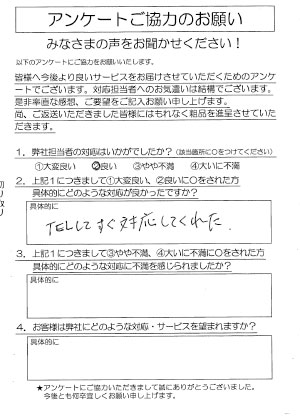 アンケートご協力のお願い
みなさまの声をお聞かせください！
以下のアンケートにご協力をお願いいたします。
皆様へ今後より良いサービスをお届けさせていただくためのアンケ
ートでございます。対応担当者へのお気遣いは結構でございます。
是非率直な感想、ご要望をご記入お願い申し上げます。
尚、ご返送いただきました皆様にはもれなく粗品を進呈させていた
だきます。
1．弊社担当者の対応はいかがでしたか？（該当箇所に○をつけてください）
①大変良い ②良い ③やや不満 ④大いに不満
2．上記1につきまして①大変良い、②良いに○をされた方
具体的にどのような対応が良かったですか？
具体的に
TELしてすぐ対応してくれた。
3．上記1につきまして③やや不満、④大いに不満に○をされた方
具体的にどのような対応に不満を感じられましたか？
具体的に
4．お客様は弊社にどのような対応・サービスを望まれますか？
具体的に
★アンケートにご協力いただきまして誠にありがとうございました。
今後とも何卒宜しくお願い申し上げます。
切り取り